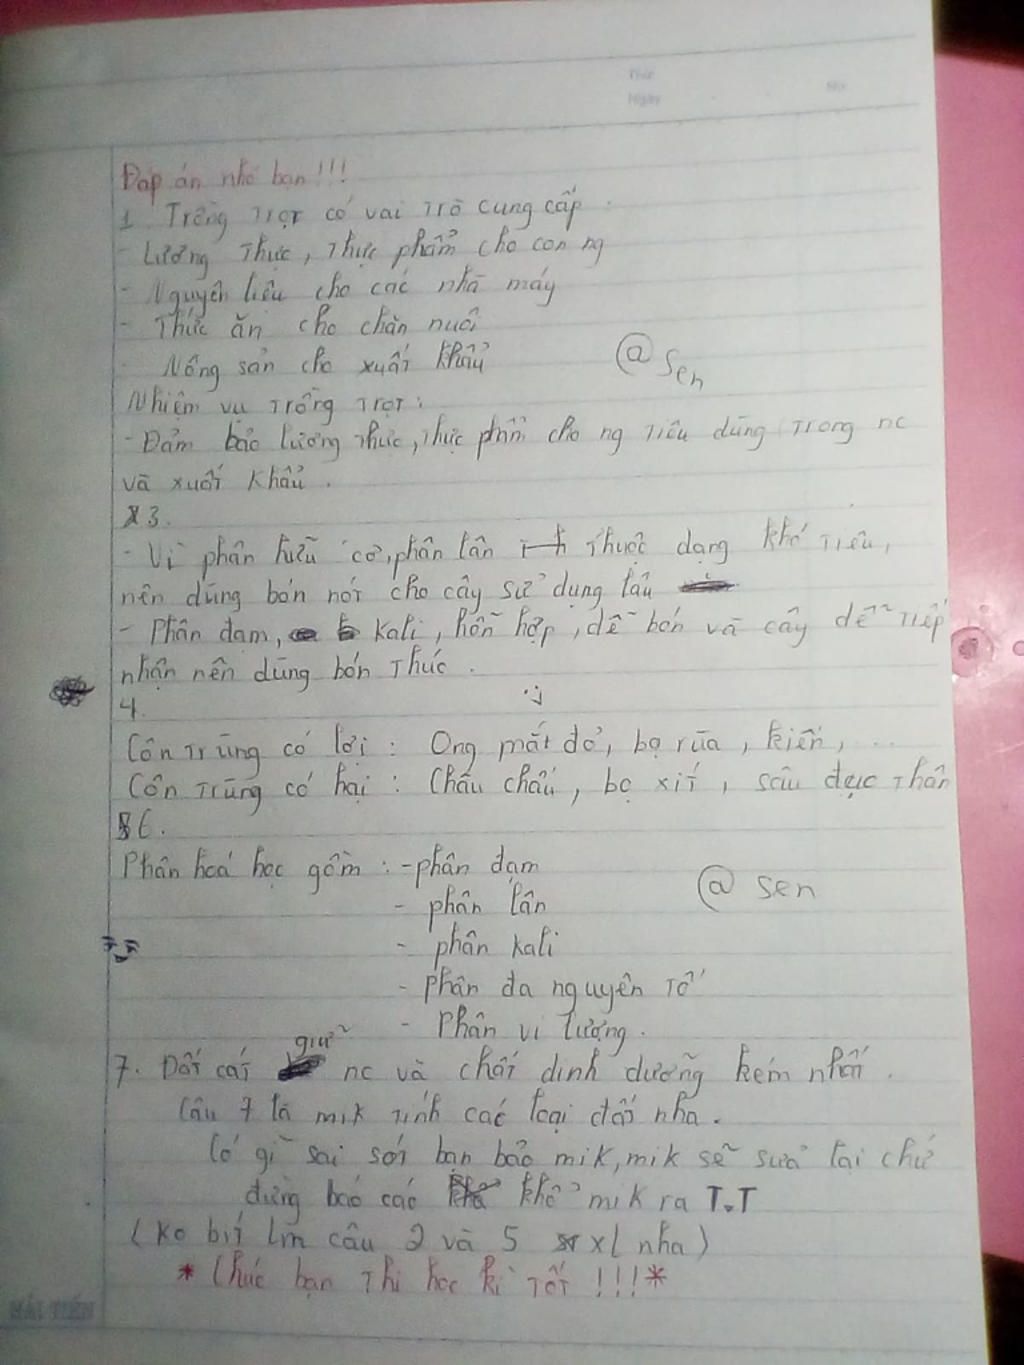 Thứ
Ngày
No
Đáp án nhé bạn!!!
1. Trồng Trọt có vai trò cung cấp.
- Lương Thực, Thực phẩm cho con ng
- Nguyên liệu cho các nhà máy
- Thức ăn cho chăn nuôi
- Nông sản cho xuất khẩu
@Sen
Nhiệm vụ Trồng Trọt:
- Đảm bảo lương thực, thực phẩm cho ng Tiêu dùng Trong nc
và xuất khẩu.
3.
- Vì phân hữu cơ, phân lân Thuộc dạng khó Tiêu,
nên dùng bón nót cho cây sử dụng lâu
- Phân đạm, Kali, hỗn hợp, dễ bón và cây dễ Tiếp
nhận nên dùng bón Thúc.
4.
Côn Trùng có lợi: Ong mắt đỏ, bọ rùa, kiến, ...
Côn Trùng có hại: Châu chấu, bọ xít, sâu đục Thân
6.
Phân hoá học gồm: - phân đạm
- phân lân
@ sen
- phân kali
- phân đa nguyên Tố
- Phân vi lượng.
7. Đất cát giữ nc và chất dinh dưỡng kém nhất.
Câu 7 là mik tính các loại đất nha.
Có gì sai sót bạn bảo mik, mik sẽ sửa lại chứ
đừng báo cáo khổ mik ra T.T
(Ko biết lm câu 2 và 5 xl nha)
* Chúc bạn Thi học kì Tốt!!!*
HẢI TIẾN